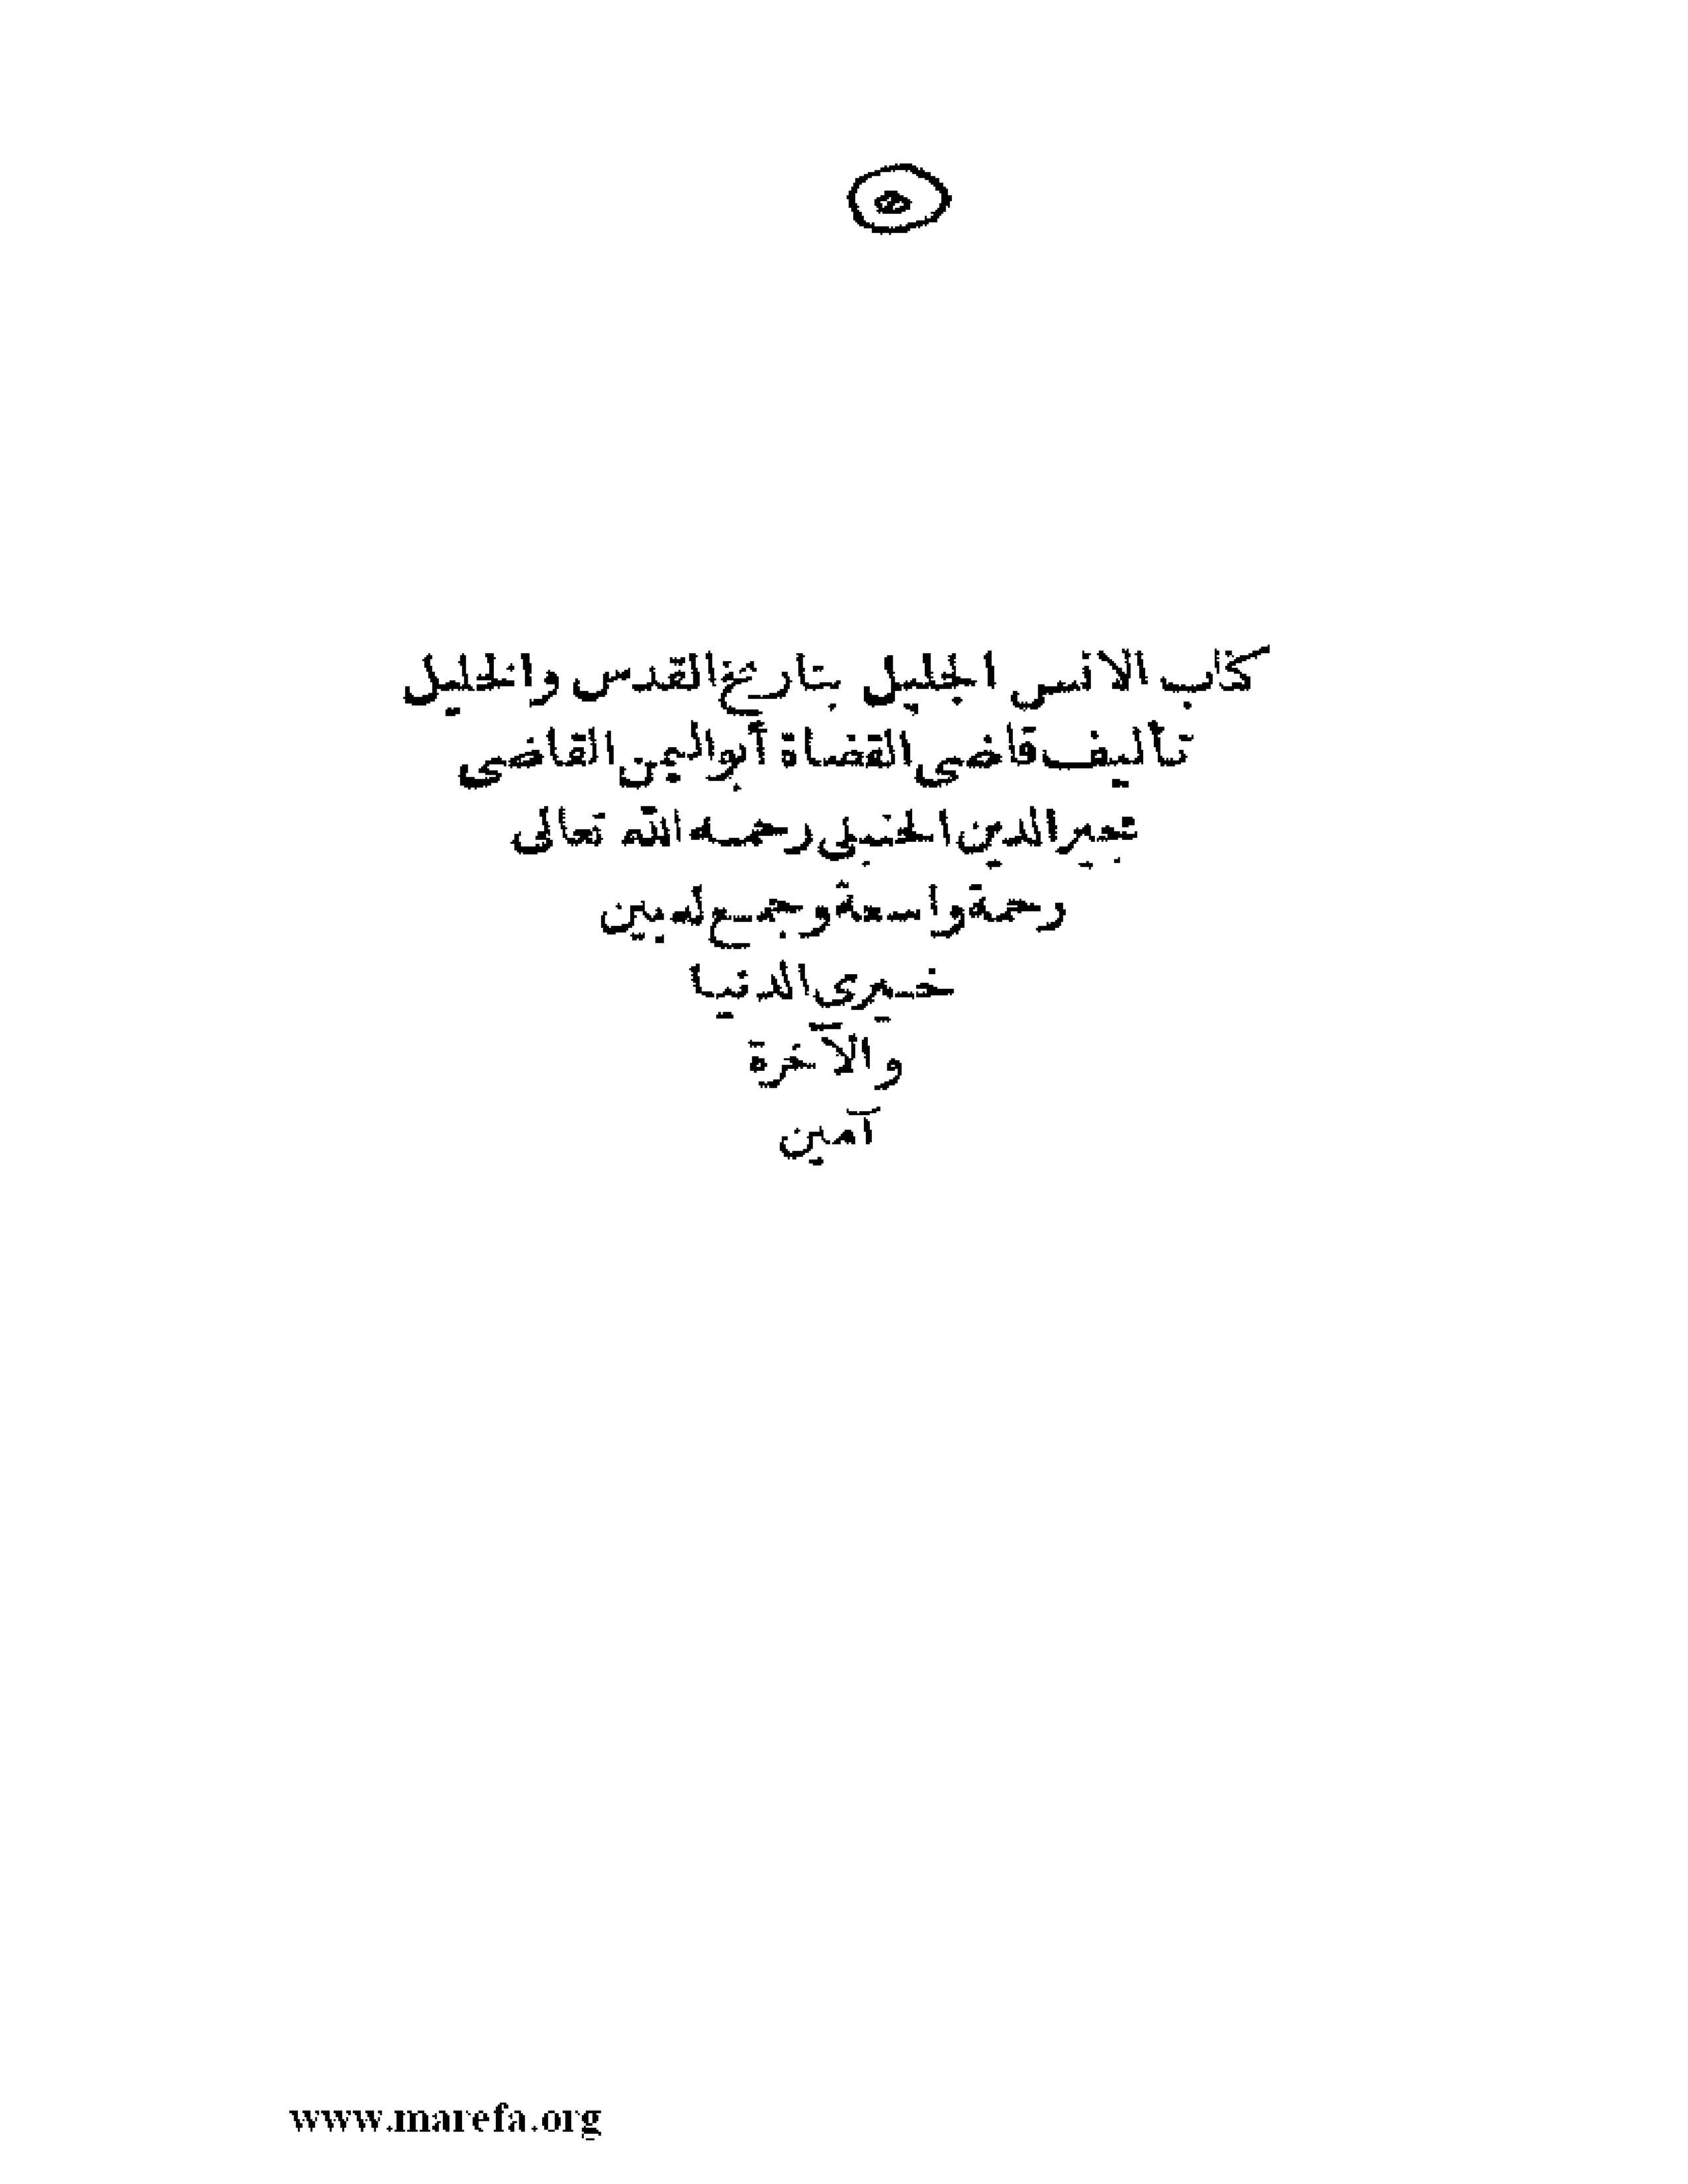 كتاب الانس الجليل بتاريخ القدس والخليل
تأليف قاضى القضاة أبو اليمن القاضى
مجير الدين الحنبلى رحمه الله تعالى
رحمة واسعة وجمع له بين
خيرى الدنيا
والآخرة
آمين
www.marefa.org